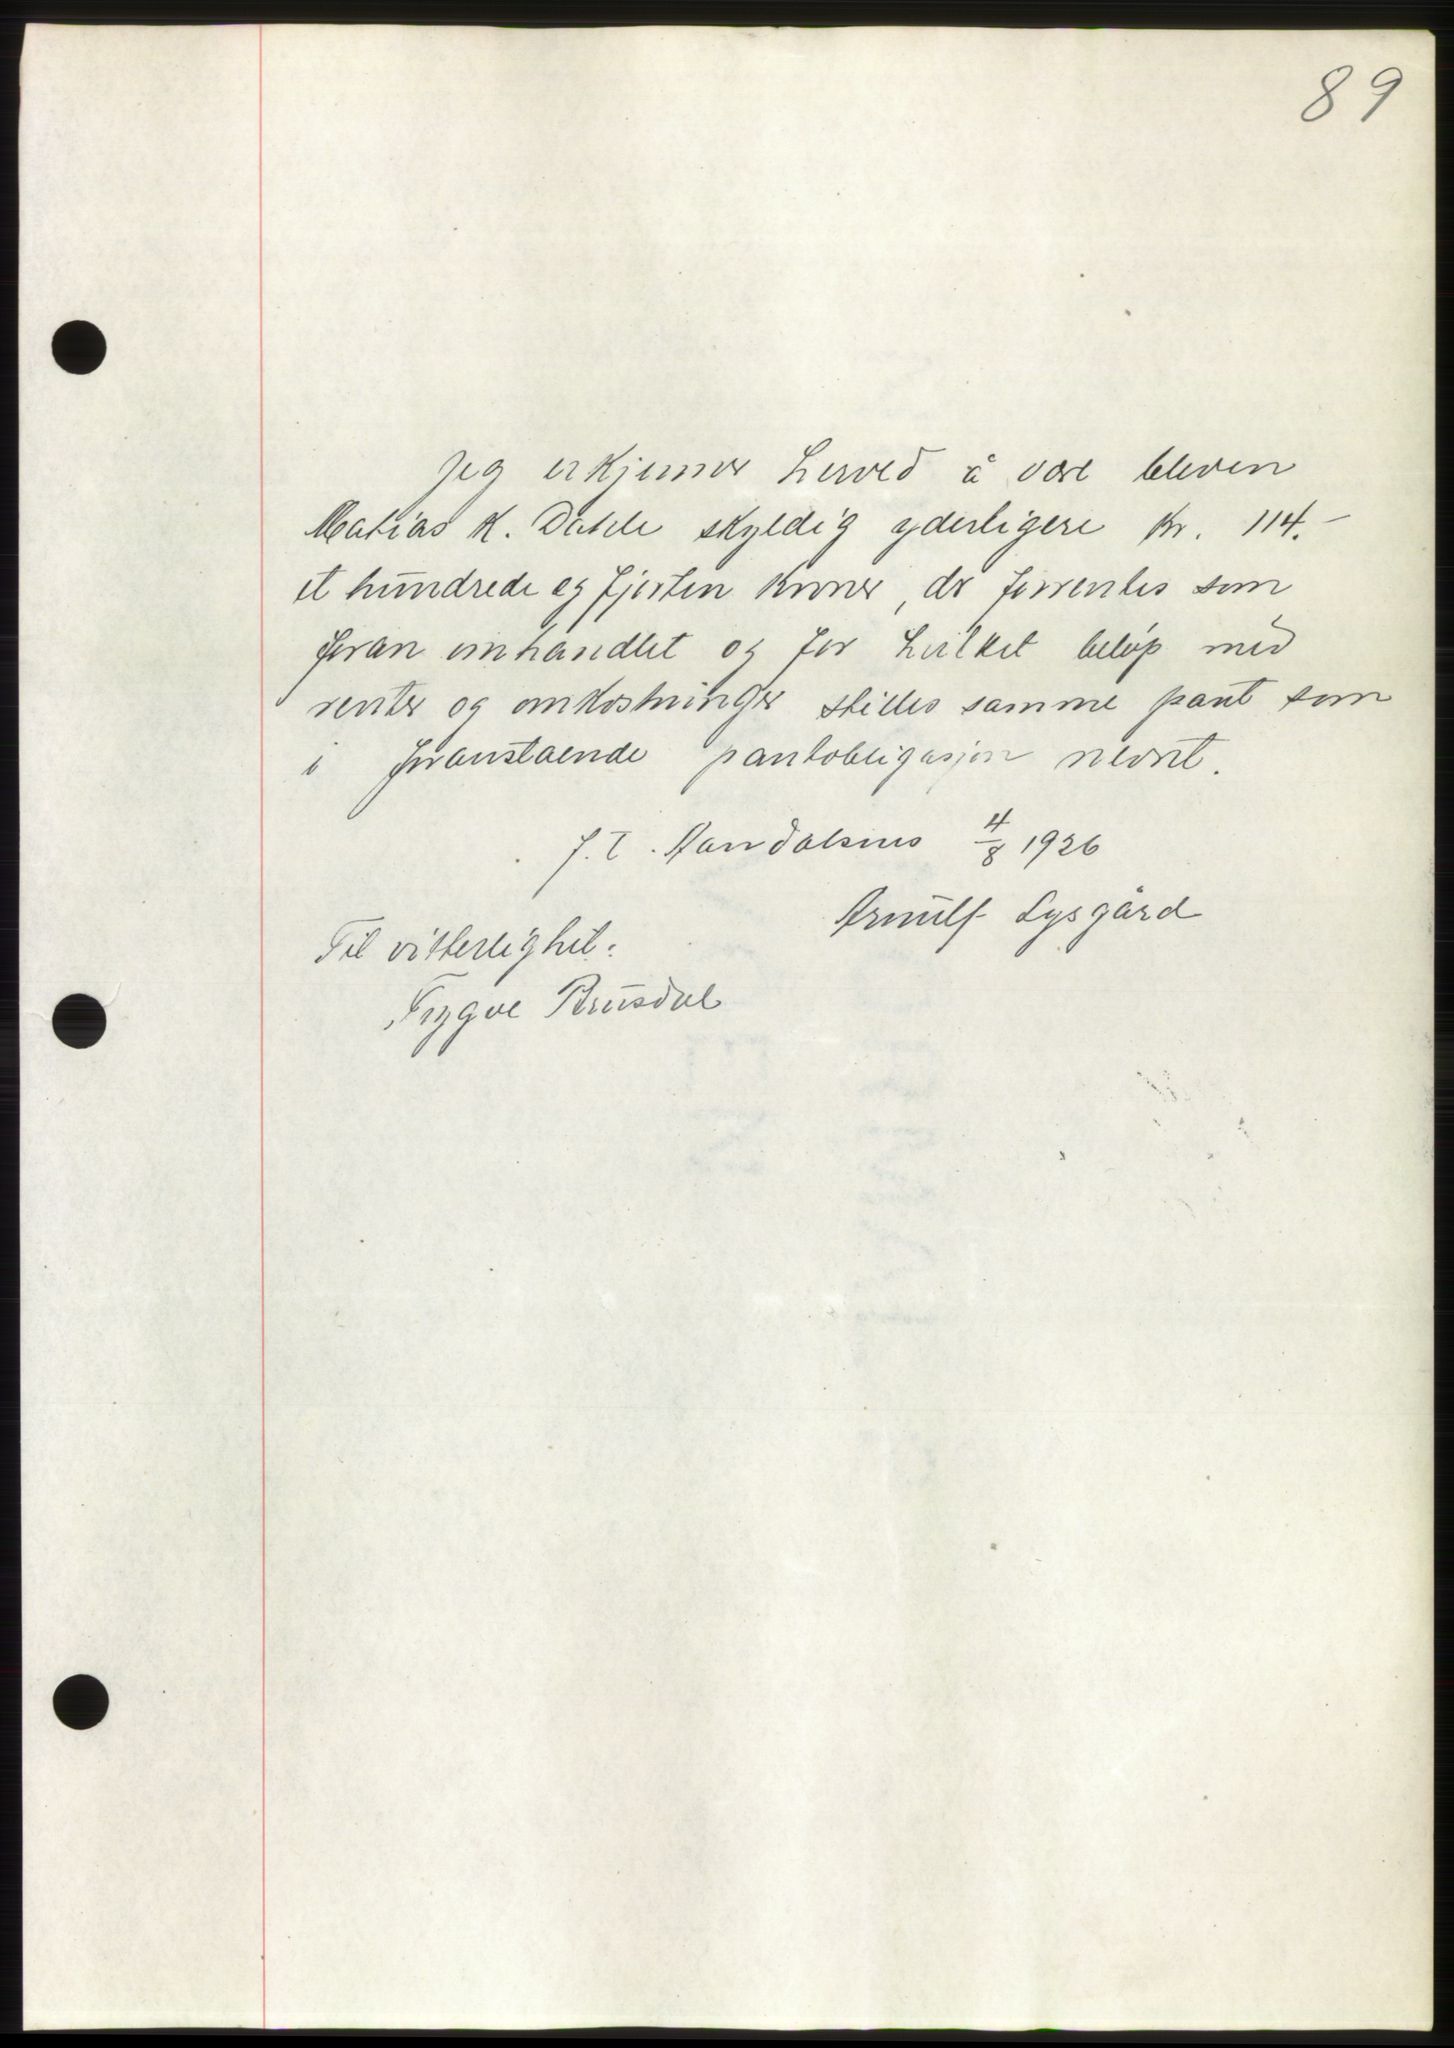 89
Jeg erkjenner herved å være bleven
Matias K. Dahle skyldig yderligere kr. 114.-
et hundrede og fjorten kroner, der forrentes som
foran omhandlet og for hvilket beløp med
renter og omkostninger stilles samme pant som
i foranstaende pantobligasjon nevnt.
f. T. Aandalsnes 4/8 1926
Arnulf Lysgård
Til vitterlighet:
Trygve Brusdal